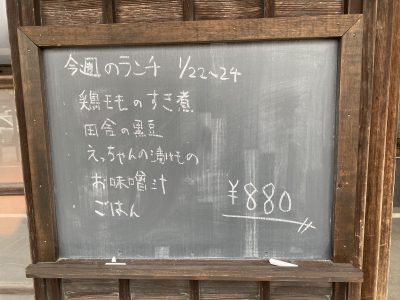 今週のランチ 1/22~24
鶏ももの すき煮
田舎の黒豆
えっちゃんの漬けもの
お味噌汁
ごはん
¥880